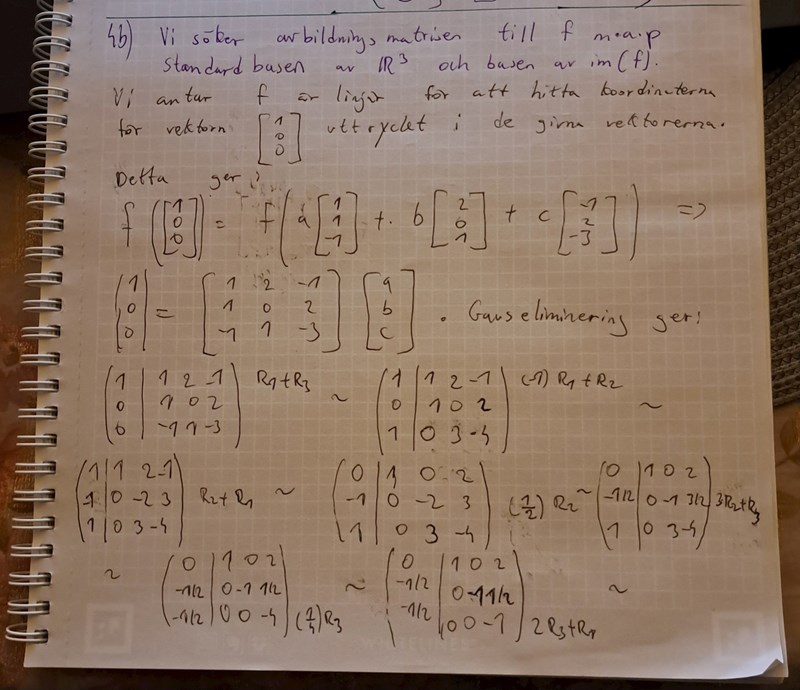 4b) Vi söker avbildnings matrisen till f m.a.p
Standardbasen av ℝ³ och basen av im(f).
Vi antar f är linjär för att hitta koordinaterna
för vektorn [1 0 0] uttryckt i de givna vektorerna.
Detta ger:
f([1 0 0]) = f(a[1 1 -1] + b[2 0 1] + c[-1 2 -3]) =>
(1 0 0) = [1 2 -1; 1 0 2; -1 1 -3] [a b c] . Gauseliminering ger:
(1 | 1 2 -1; 0 | 1 0 2; 0 | -1 1 -3) R1+R3 ~ (1 | 1 2 -1; 0 | 1 0 2; 1 | 0 3 -4) (-1) R1+R2 ~
(1 | 1 2 -1; -1 | 0 -2 3; 1 | 0 3 -4) R2+R1 ~ (0 | 1 0 2; -1 | 0 -2 3; 1 | 0 3 -4) (1/2) R2 ~ (0 | 1 0 2; -1/2 | 0 -1 3/2; 1 | 0 3 -4) 3R2+R3
~ (0 | 1 0 2; -1/2 | 0 -1 1/2; -1/2 | 0 0 -4) (1/4)R3 ~ (0 | 1 0 2; -1/2 | 0 -1 1/2; -1/2 | 0 0 -1) 2R3+R1 ~